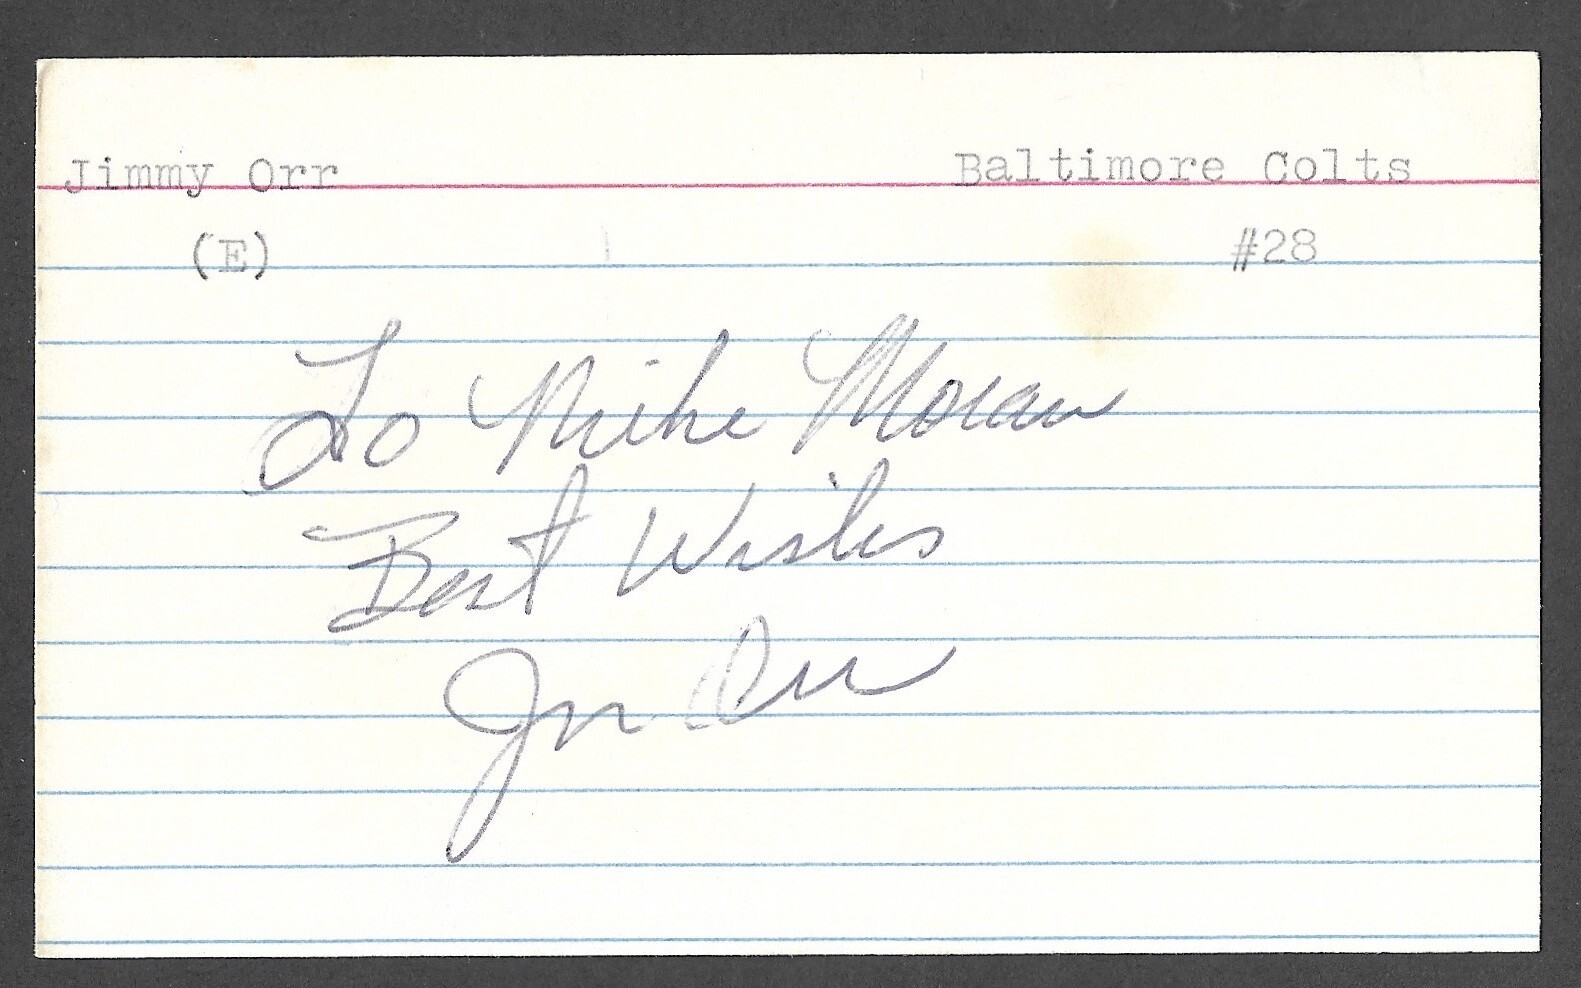 Jimmy Orr Baltimore Colts
(E) #28
To Mike Moran
Best Wishes
Jim Orr